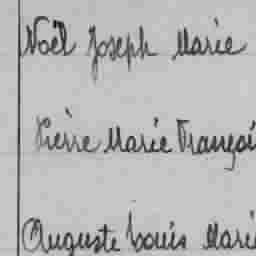 Noël Joseph Marie
Pierre Marie Françoi
Auguste Louis Marie